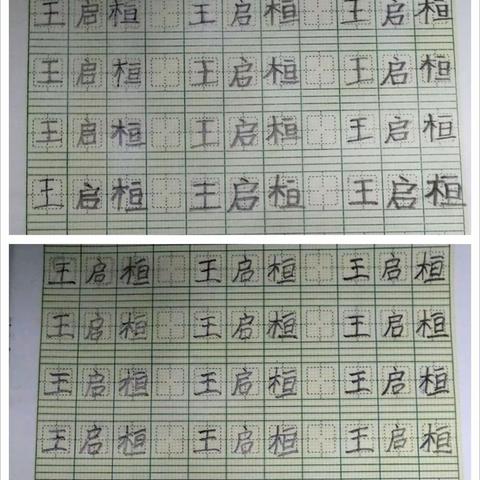 王启桓 王启桓 王启桓
王启桓 王启桓 王启桓
王启桓 王启桓 王启桓
王启桓 王启桓 王启桓
王启桓 王启桓 王启桓
王启桓 王启桓 王启桓
王启桓 王启桓 王启桓
王启桓 王启桓 王启桓